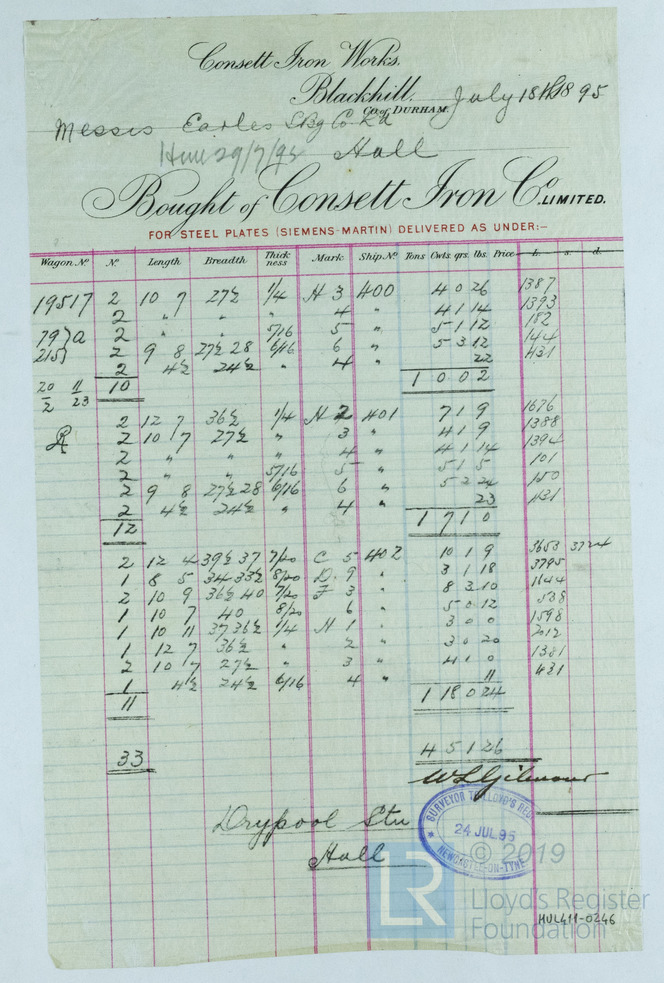 Consett Iron Works.
Blackhill.
Co. of DURHAM July 18th 1895
Messrs Earles SBg Co Ld
Hull 29/7/95 Hull
Bought of Consett Iron Co. LIMITED.
FOR STEEL PLATES (SIEMENS-MARTIN) DELIVERED AS UNDER:-
Wagon No. No. Length Breadth Thickness Mark Ship No. Tons Cwts. qrs. lbs. Price £. s. d.
19517 2 10 7 27½ 1/4 H 3 400 4 0 26 1387
2 " " " " 4 " 4 1 14 1393
79}a 2 " " " 5/16 5 " 5 1 12 182
215} 2 9 8 27½ 28 6/16 6 " 5 3 12 144
2 4½ 24½ " 4 " 22 431
20 11 10 1 0 0 2
2 23
2 12 7 36½ 1/4 H 2 401 7 1 9 1676
R 2 10 7 27½ " 3 " 4 1 9 1388
2 " " " " 4 " 4 1 14 1394
2 " " " 5/16 5 " 5 1 5 101
2 9 8 27½ 28 6/16 6 " 5 2 24 150
2 4½ 24½ " 4 " 23 431
12 1 7 1 0
2 12 4 39½ 37 7/20 C 5 402 10 1 9 3653 3724
1 8 5 34 33½ 8/20 D. 9 " 3 1 18 3795
2 10 9 36½ 40 7/20 F 3 " 8 3 10 1644
1 10 7 40 8/20 6 " 5 0 12 538
1 10 11 37 36½ 1/4 H 1 " 3 0 0 1598
1 12 7 36½ " 2 " 3 0 20 2012
2 10 7 27½ " 3 " 4 1 0 1381
1 4½ 24½ 6/16 4 " 11 431
11 1 18 0 24
33 4 5 1 26
WLGilmour
Drypool Stn
Hull
SURVEYOR TO LLOYD'S REG
24 JUL. 95
NEWCASTLE-ON-TYNE
© 2019
LR Lloyd's Register
Foundation
HUL411-0246